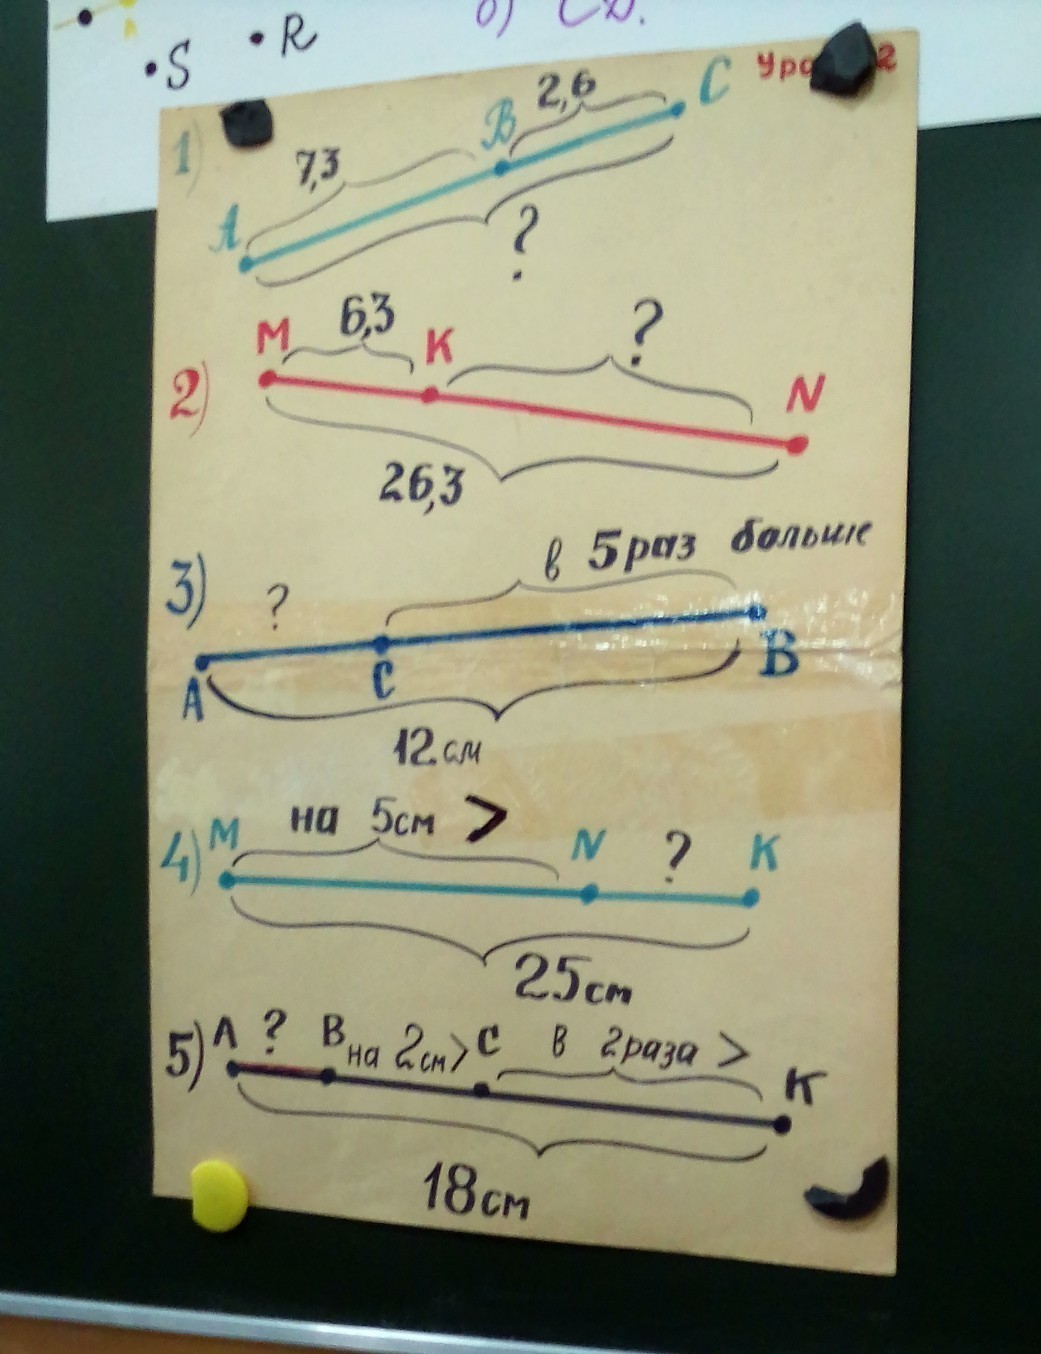 б) CD.
• S • R
1) A 7,3 B 2,6 C
?
2) M 6,3 K ? N
26,3
3) ? в 5 раз больше
A C B
12 см
4) M на 5 см > N ? K
25 см
5) A ? B на 2 см > C в 2 раза > K
18 см